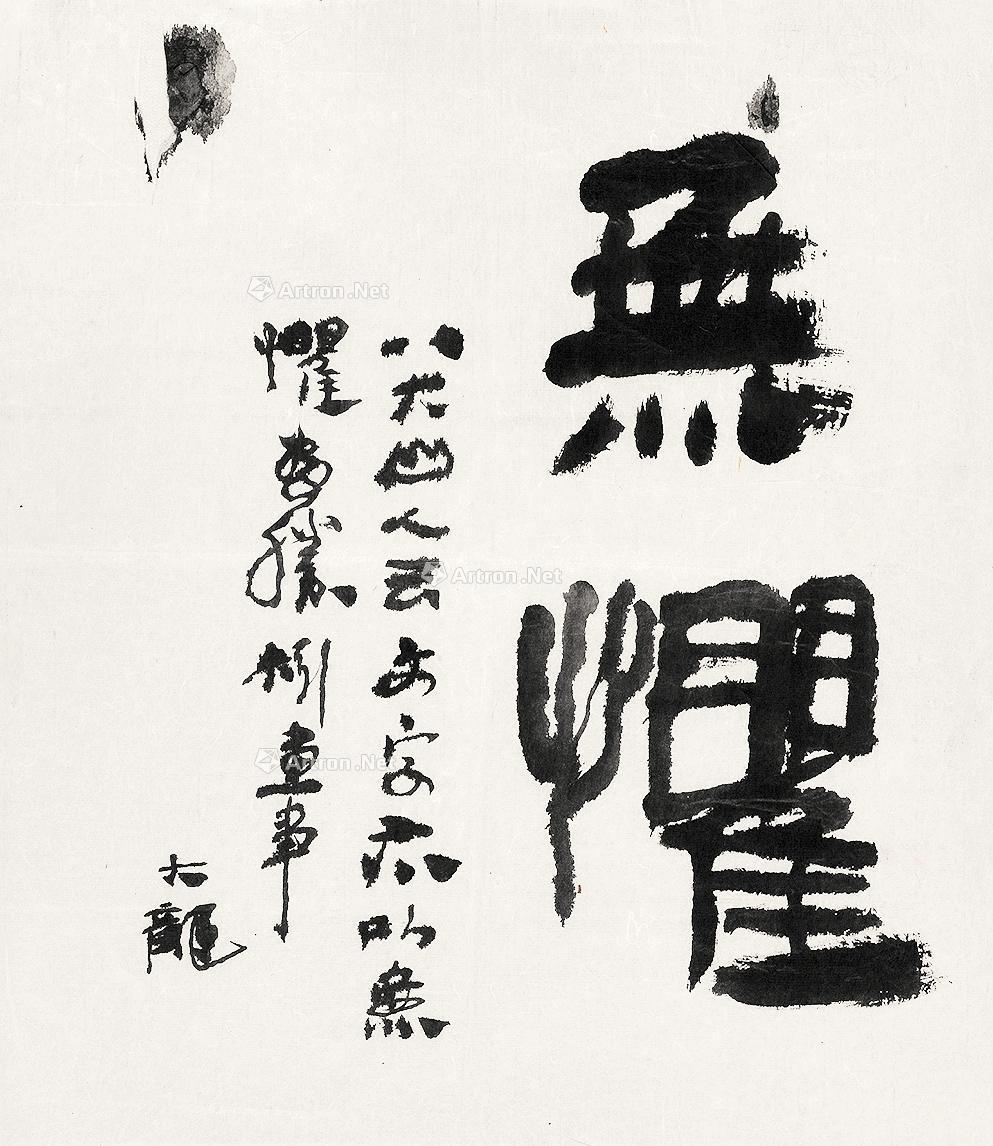 無懼
八大山人云文字亦以無
懼為勝矧畫事
大龍
Artron.Net
Artron.Net
Artron.Net